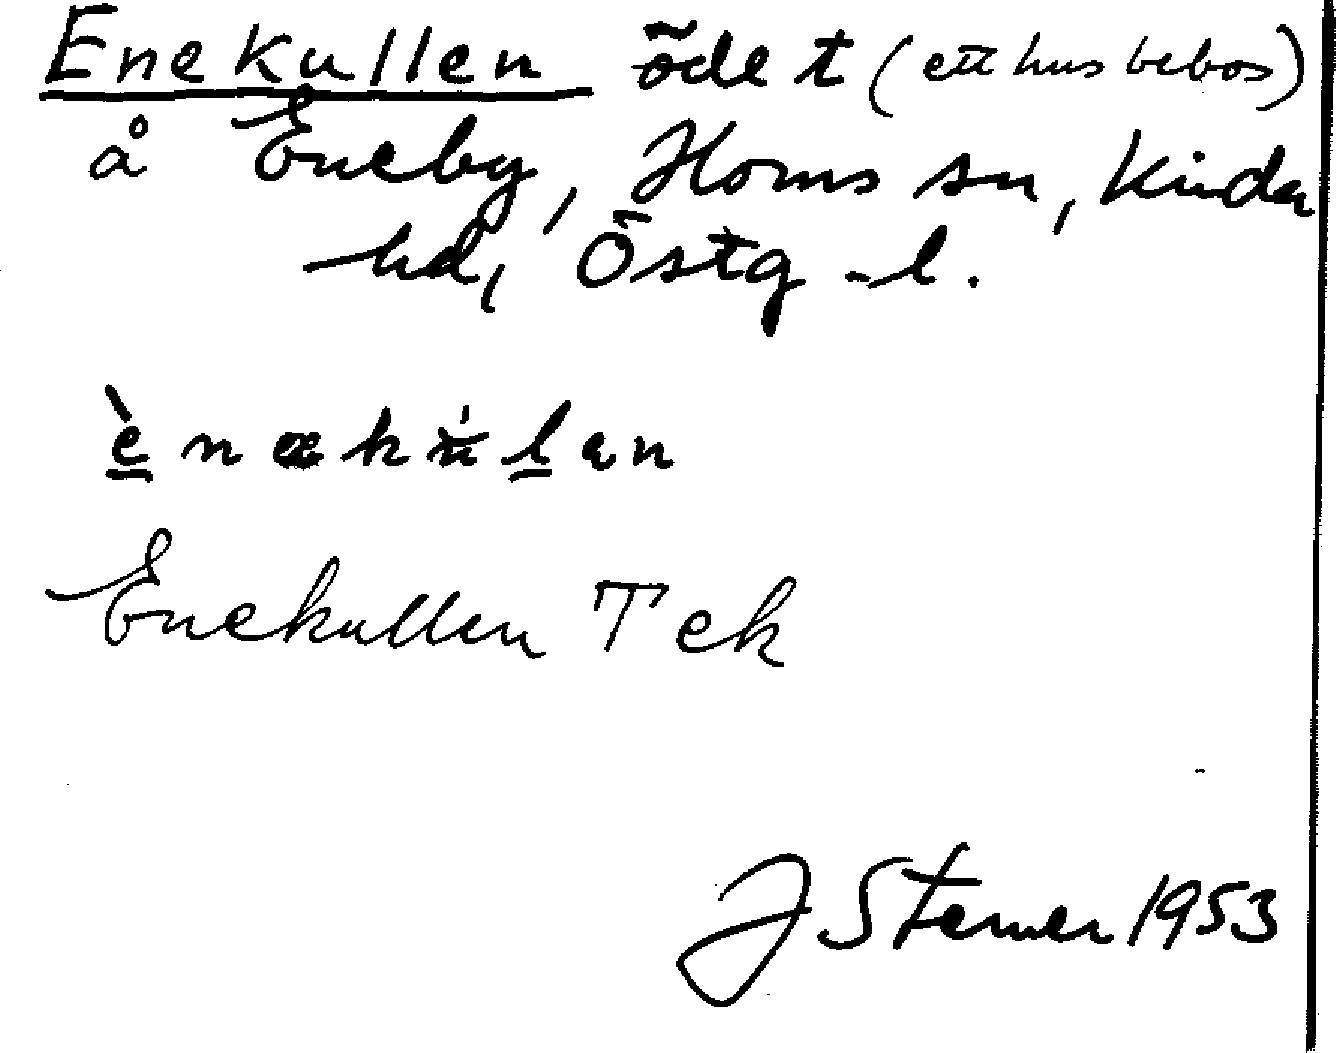 Enekullen ödet (ett hus bebos)
å Eneby, Horns sn, Kinda
hd, Östg -l.
Enekullen T ek
J Sterner 1953